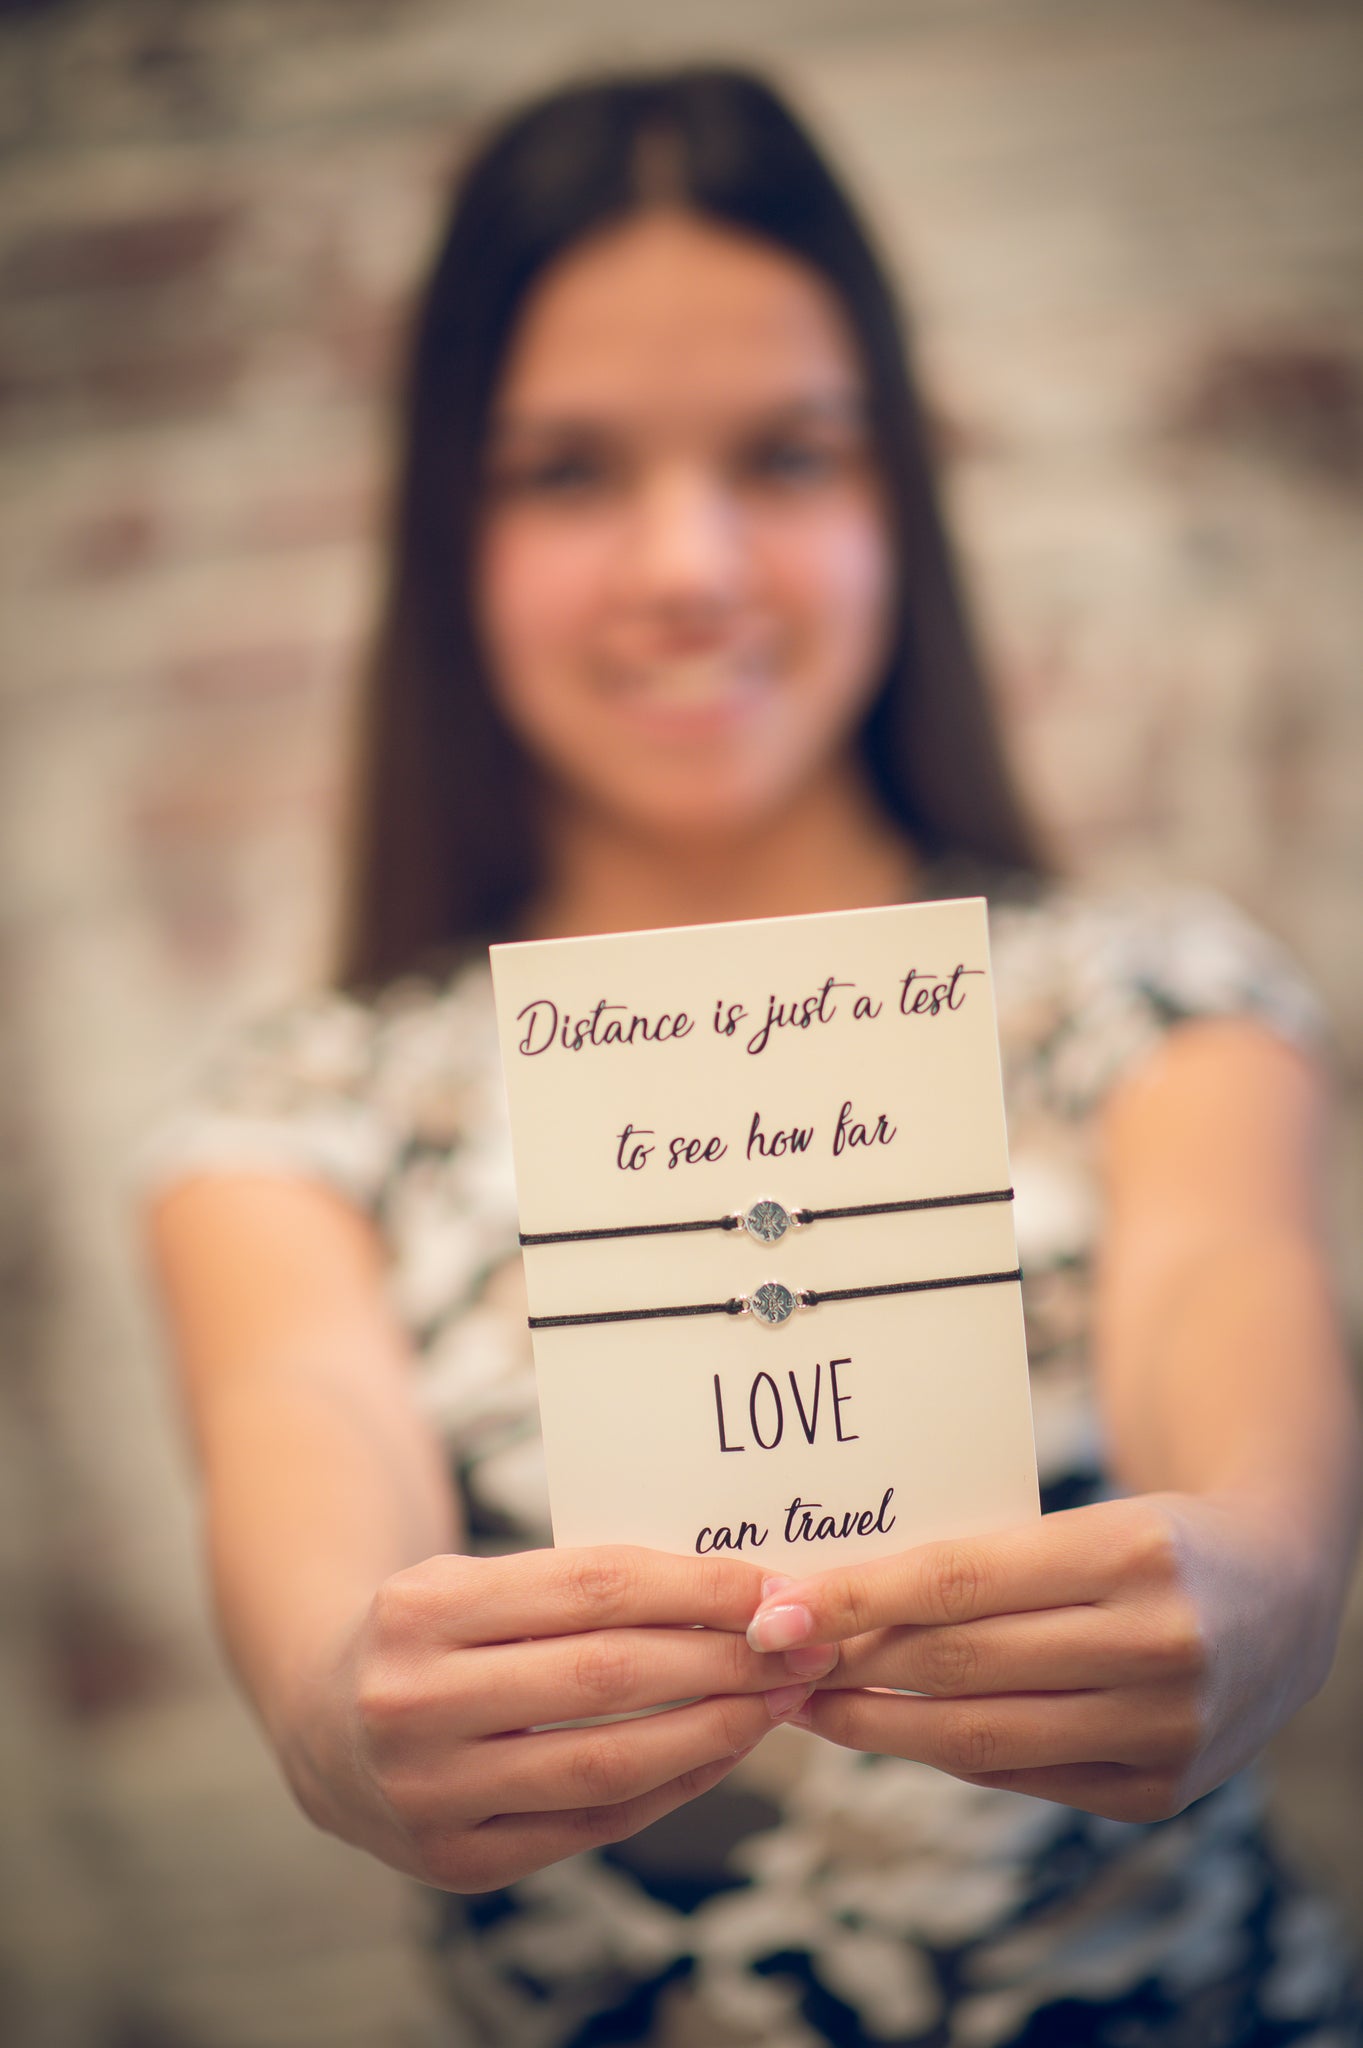 Distance is just a test
to see how far
LOVE
can travel